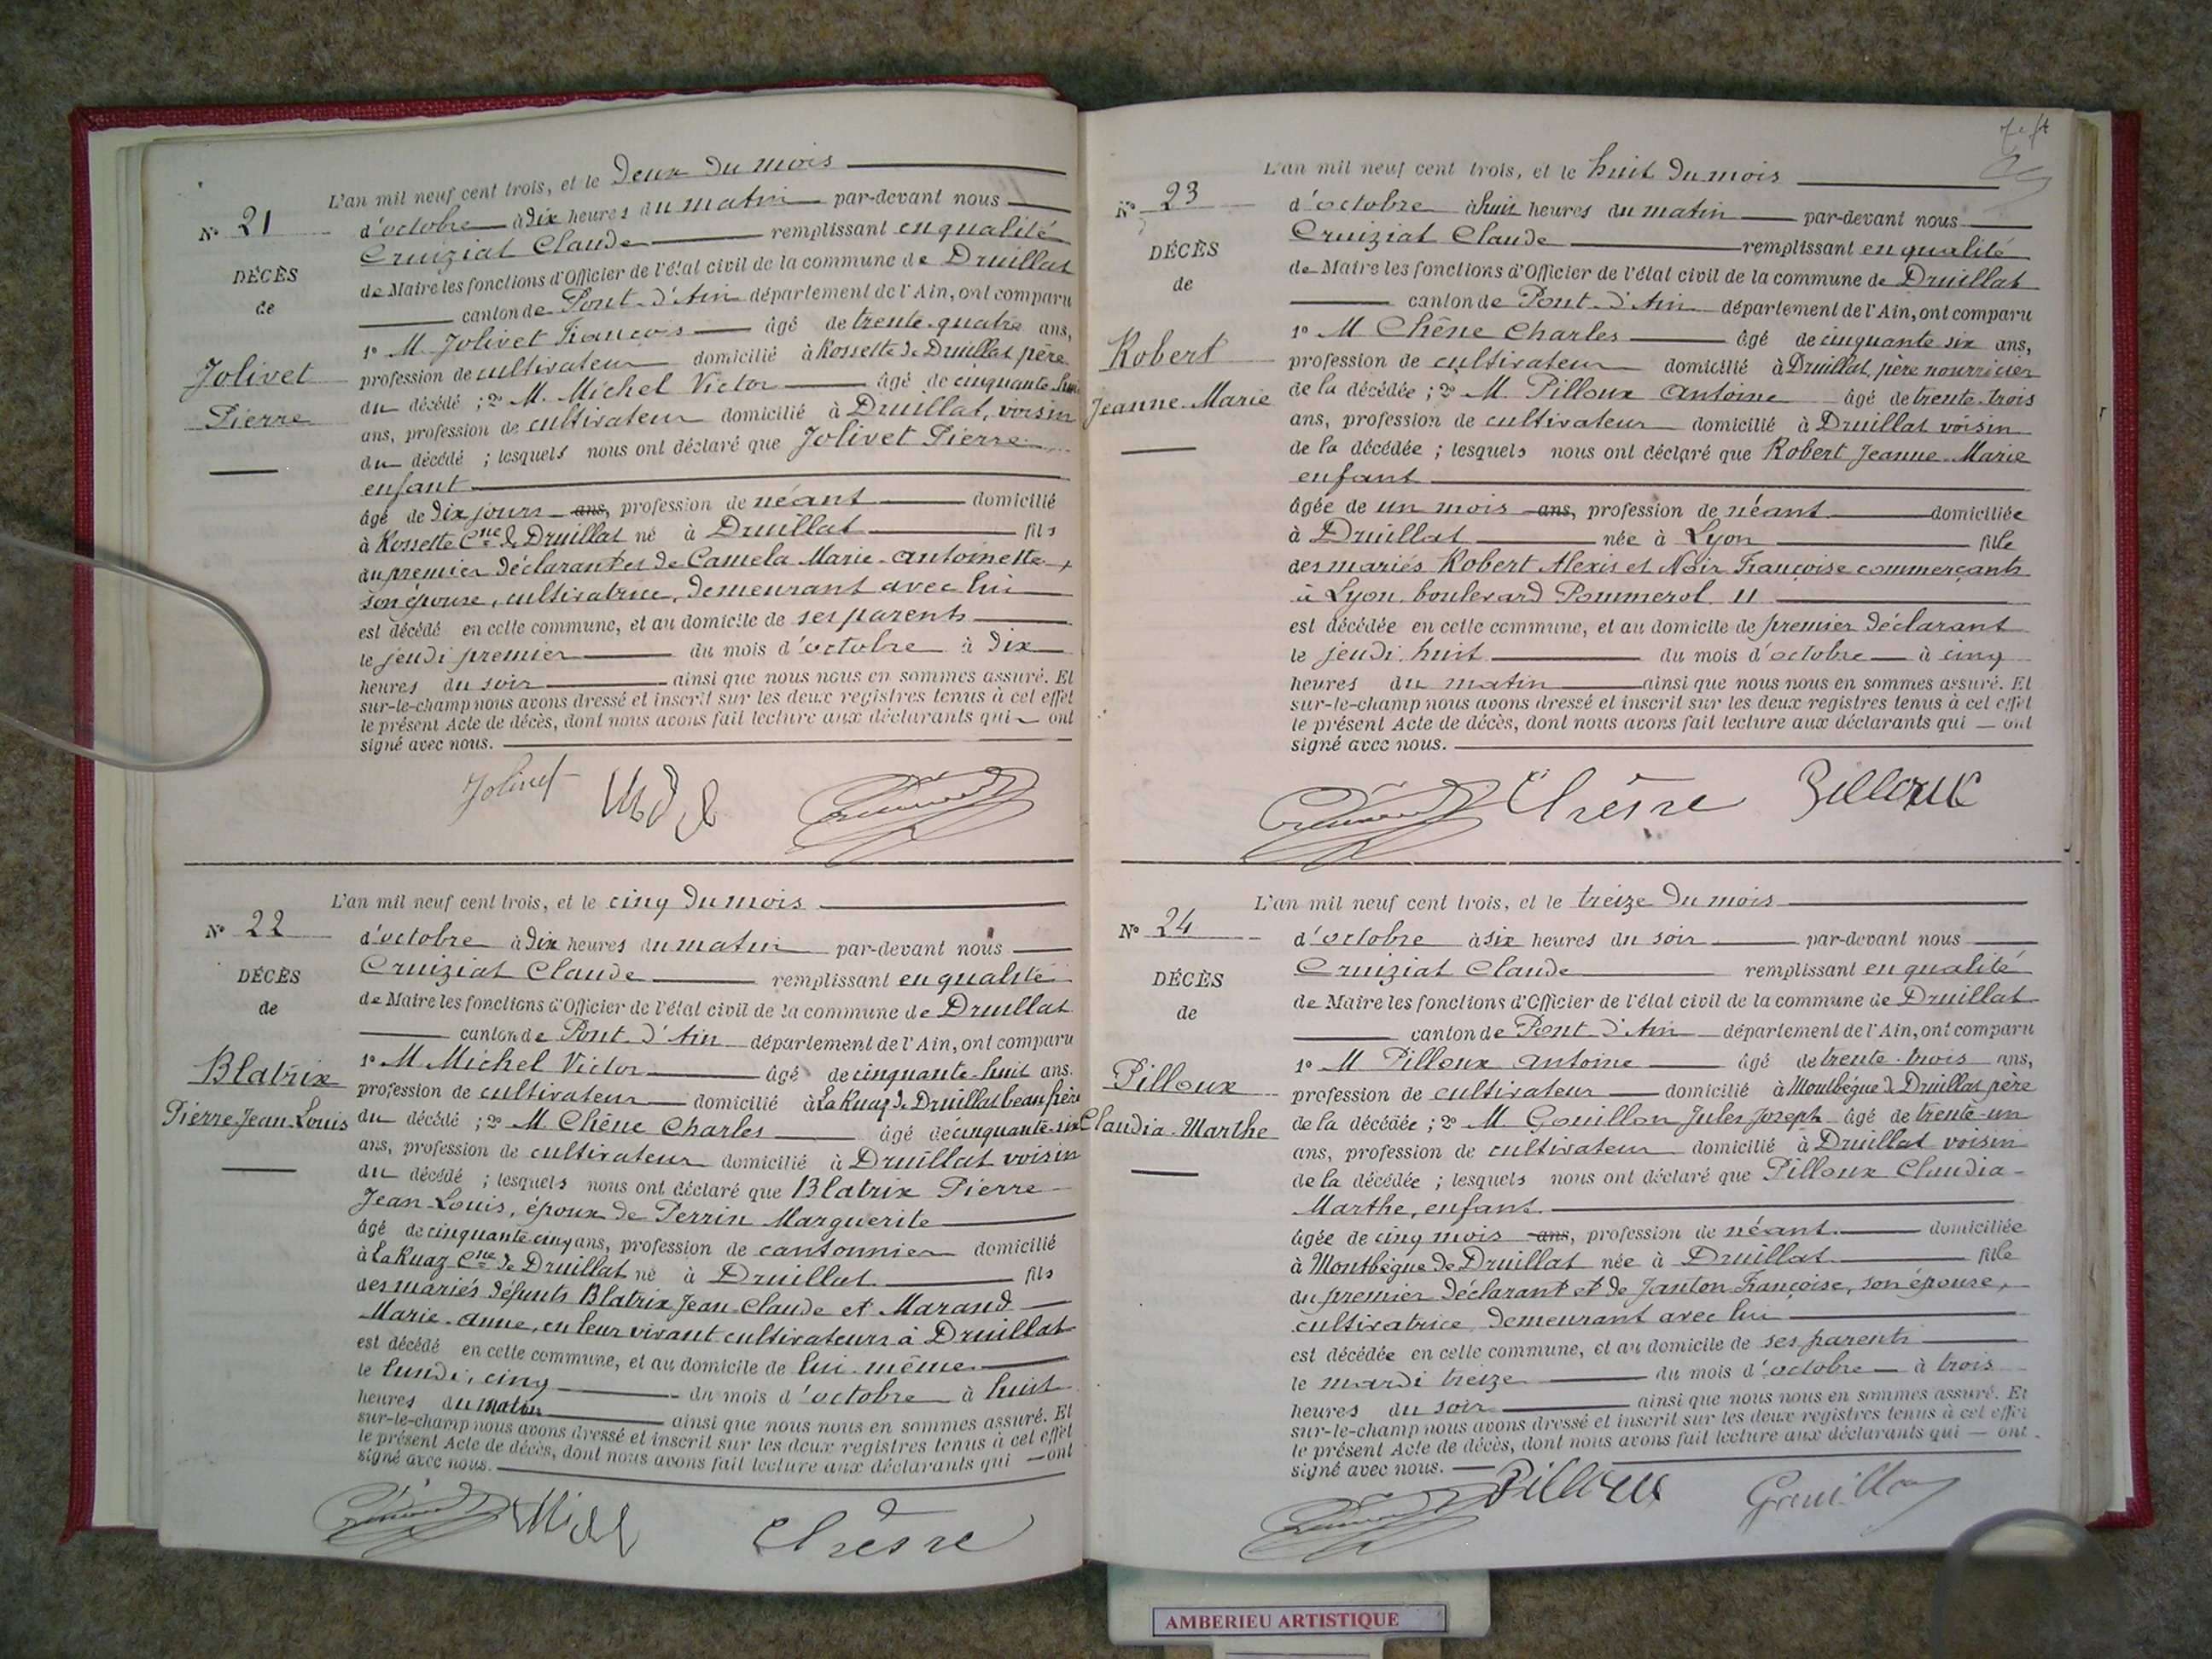 L'an mil neuf cent trois, et le deux du mois
N° 21
d'octobre à dix heures du matin par-devant nous
Cruiziat Claude remplissant en qualité
DÉCÈS
de Maire les fonctions d'Officier de l'état civil de la commune de Druillat
de
canton de Pont-d'Ain département de l'Ain, ont comparu
1° M. Jolivet François âgé de trente-quatre ans,
Jolivet
profession de cultivateur domicilié à Rossette de Druillat père
du décédé ; 2° M. Michel Victor âgé de cinquante-huit
Pierre
ans, profession de cultivateur domicilié à Druillat, voisin
du décédé ; lesquels nous ont déclaré que Jolivet Pierre
enfant
âgé de dix jours ans, profession de néant domicilié
à Rossette Cne de Druillat né à Druillat fils
du premier déclarant et de Camela Marie-Antoinette,
son épouse, cultivatrice, demeurant avec lui
est décédé en cette commune, et au domicile de ses parents
le jeudi premier du mois d'octobre à dix
heures du soir ainsi que nous nous en sommes assuré. Et
sur-le-champ nous avons dressé et inscrit sur les deux registres tenus à cet effet
le présent Acte de décès, dont nous avons fait lecture aux déclarants qui ont
signé avec nous.
Jolivet
L'an mil neuf cent trois, et le cinq du mois
N° 22
d'octobre à dix heures du matin par-devant nous
Cruiziat Claude remplissant en qualité
DÉCÈS
de Maire les fonctions d'Officier de l'état civil de la commune de Druillat
de
canton de Pont-d'Ain département de l'Ain, ont comparu
1° M Michel Victor âgé de cinquante-huit ans.
Blatrix
profession de cultivateur domicilié à La Ruaz de Druillat beau frère
Pierre-Jean-Louis
du décédé ; 2° M. Chêne Charles âgé de cinquante-six
ans, profession de cultivateur domicilié à Druillat voisin
du décédé ; lesquels nous ont déclaré que Blatrix Pierre
Jean-Louis, époux de Perrin Marguerite
âgé de cinquante cinq ans, profession de cantonnier domicilié
à La Ruaz Cne de Druillat né à Druillat fils
des mariés défunts Blatrix Jean-Claude et Marand
Marie-Anne, en leur vivant cultivateurs à Druillat
est décédé en cette commune, et au domicile de lui-même
le lundi, cinq du mois d'octobre à huit
heures du matin ainsi que nous nous en sommes assuré. Et
sur-le-champ nous avons dressé et inscrit sur les deux registres tenus à cet effet
le présent Acte de décès, dont nous avons fait lecture aux déclarants qui ont
signé avec nous.
Chêsne
L'an mil neuf cent trois, et le huit du mois
N° 23
d'octobre à huit heures du matin par-devant nous
Cruiziat Claude remplissant en qualité
DÉCÈS
de Maire les fonctions d'Officier de l'état civil de la commune de Druillat
de
canton de Pont-d'Ain département de l'Ain, ont comparu
1° M Chêne Charles âgé de cinquante six ans,
Robert
profession de cultivateur domicilié à Druillat, père nourricier
Jeanne-Marie
de la décédée ; 2° M. Pilloux Antoine âgé de trente-trois
ans, profession de cultivateur domicilié à Druillat voisin
de la décédée ; lesquels nous ont déclaré que Robert Jeanne-Marie
enfant
âgée de un mois ans, profession de néant domiciliée
à Druillat née à Lyon fille
des mariés Robert Alexis et Noir Françoise commerçants
à Lyon, boulevard Pommerol, 11
est décédée en cette commune, et au domicile de premier déclarant
le jeudi, huit du mois d'octobre à cinq
heures du matin ainsi que nous nous en sommes assuré. Et
sur-le-champ nous avons dressé et inscrit sur les deux registres tenus à cet effet
le présent Acte de décès, dont nous avons fait lecture aux déclarants qui ont
signé avec nous.
Chêsne Pilloux
L'an mil neuf cent trois, et le treize du mois
N° 24
d'octobre à six heures du soir par-devant nous
Cruiziat Claude remplissant en qualité
DÉCÈS
de Maire les fonctions d'Officier de l'état civil de la commune de Druillat
de
canton de Pont-d'Ain département de l'Ain, ont comparu
1° M Pilloux Antoine âgé de trente-trois ans,
Pilloux
profession de cultivateur domicilié à Montbègue de Druillat père
Claudia-Marthe
de la décédée ; 2° M. Gouillon Jules Joseph âgé de trente-un
ans, profession de cultivateur domicilié à Druillat voisin
de la décédée ; lesquels nous ont déclaré que Pilloux Claudia-
Marthe, enfant.
âgée de cinq mois ans, profession de néant. domiciliée
à Montbègue de Druillat née à Druillat fille
du premier déclarant et de Janton Françoise, son épouse,
cultivatrice, demeurant avec lui
est décédée en cette commune, et au domicile de ses parents
le mardi treize du mois d'octobre à trois
heures du soir ainsi que nous nous en sommes assuré. Et
sur-le-champ nous avons dressé et inscrit sur les deux registres tenus à cet effet
le présent Acte de décès, dont nous avons fait lecture aux déclarants qui ont
signé avec nous.
Pilloux Gouillon
AMBERIEU ARTISTIQUE